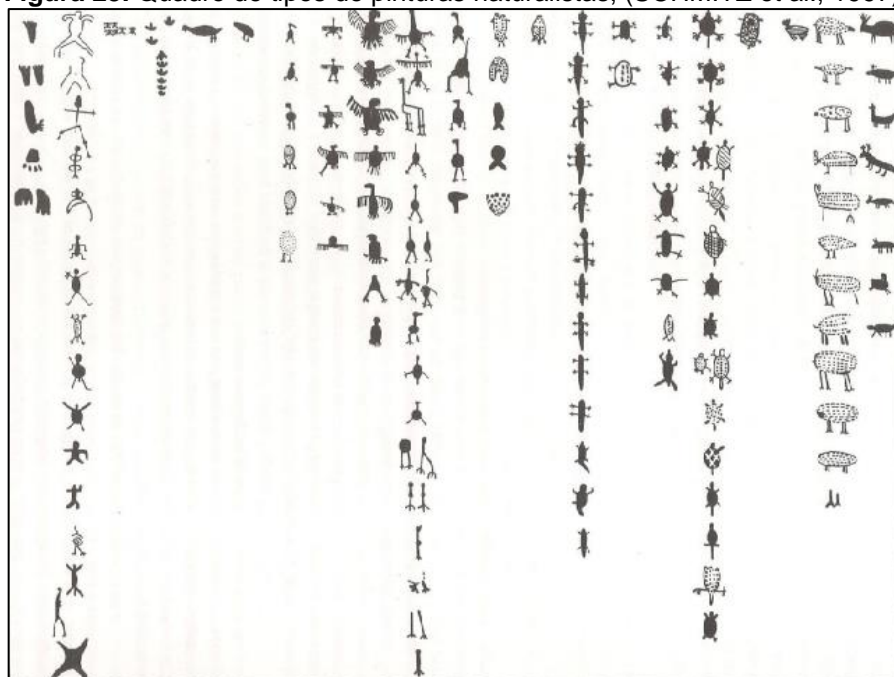 Figura Quadro de tipos de pinturas naturalistas, (SCHMITZ et alii, 1997)